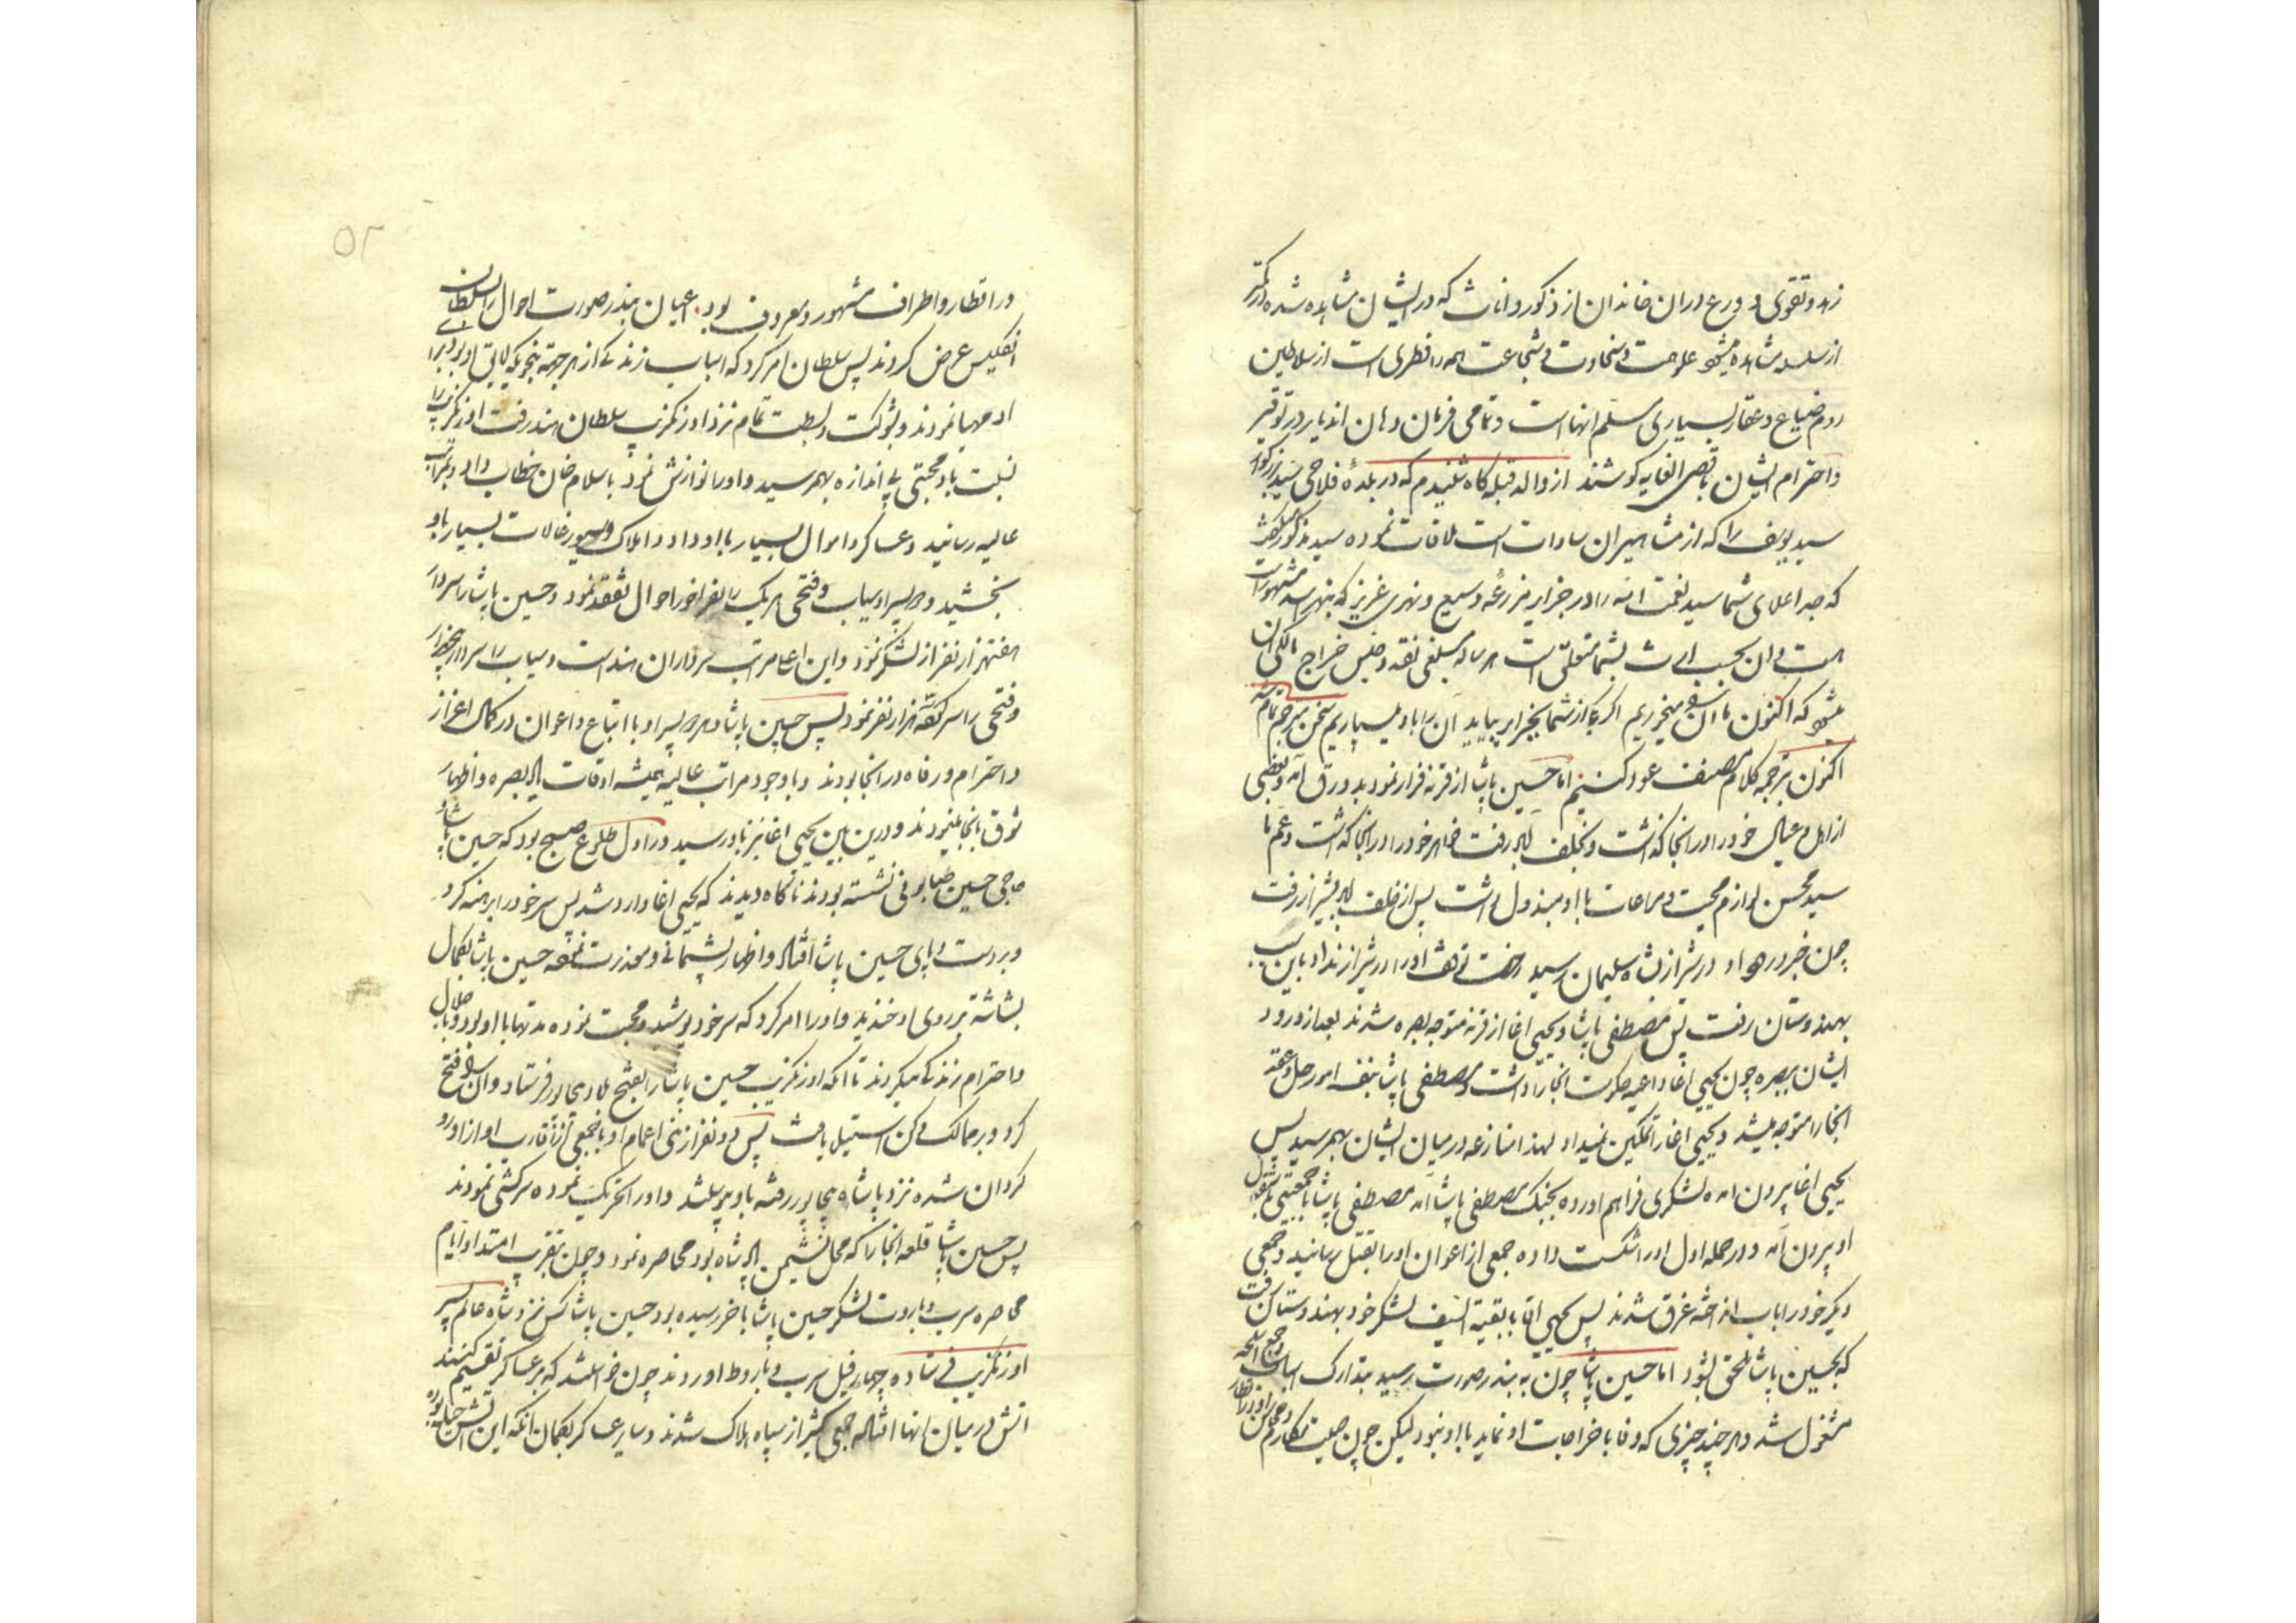 زهد و تقوی و ورع در ان خاندان از ذکور و اناث که در ایشان مشاهده شده در کمتر
از سلسله مشاهده میشود علو همت و سخاوت و شجاعت همه را فطری است از سلاطین
روم ضیاع و عقار بسیاری مسلم انهاست و تمامی فرمان دهان اندیار در توقیر
و احترام ایشان باقصی الغایه کوشند از والد قبله کاه شنیدم که در بلدهٔ فلاحی سید بزرکوار
سید یوسف را که از مشاهیران سادات است ملاقات نموده سید مذکور
که جد اعلای شما سید نعمت الله را در جزایر مزرعه وسیع و نهری غزیر که بنهر مشهور است
هست و ان بحسب ارث بشما متعلق است هر ساله مبلغی نقد و جنس خراج مالکی ان
میشود که اکنون ما ان میخوریم اکر از شما بجزایر بیاید ان را باو میسپاریم سخن مترجم تمام شد
اکنون بترجمه کلام مصنف عود کنیم اما حسین پاشا از قرنه فرار نمود بدورق امد و بعضی
از اهل و عیال خود را در انجا کذاشت و رفت خواهر خود را در انجا کذاشت و عم ما
سید محسن لوازم محبت و مراعات باو مبذول داشت پس از خلف اباد بشیراز رفت
چون خبر ورود او در شیراز بشاه سلیمان رسید رخصت توقف او را در شیراز نداد باین سبب
بهندوستان رفت پس مصطفی پاشا و یحیی اغا از قرنه متوجه بصره شدند بعد از ورود
ایشان ببصره چون یحیی اغا داعیه حکومت انجا را داشت و مصطفی پاشا بنفسه امور حل و عقد
انجا را متوجه میشد و یحیی اغا را تمکین نمیداد لهذا منازعه در میان ایشان بهم رسید پس
یحیی اغا بیرون امده لشکری فراهم اورده بجنک مصطفی پاشا امد مصطفی پاشا با جمعیتی
او بیرون امد و در حمله اول او را شکست داده جمعی از اعوان او را بقتل رسانید و جمعی
دیکر خود را باب انداخته غرق شدند پس یحیی اقا با بقیة السیف لشکر خود بهندوستان رفت
که بحسین پاشا ملحق شود اما حسین پاشا چون به بندر صورت رسید بتدارک
مشغول شد و هر چند چیزی که وفا باخراجات او نماید با او نبود لیکن چون صیت مکارم
در اقطار و اطراف مشهور و معروف بود اعیان بندر صورت احوال را بسلطان
انکلیس عرض کردند پس سلطان امر کرد که اسباب زندکی از هر جهة بنحویکه لایق او بود برای
او مهیا نمودند و بشوکت و بسطت تمام نزد اورنکزیب سلطان هند رفت اورنکزیب را
نسبت باو محبتی بی اندازه بهم رسید و او را نوازش نمود باسلام خان خطاب داد و بمراتب
عالیه رسانید و عساکر و اموال بسیار باو داد و املاک و سیورغالات بسیار باو
بخشید و دو پسر او سیاب و فتحی هر یک را بفراخور احوال تفقد نمود و حسین پاشا را سردار
هفتهزار نفر از لشکر نمود و این اعلی مراتب سرداران هند است و سیاب را سردار
و فتحی را سرکرده هزار نفر نمود پس حسین پاشا و هر دو پسر او با اتباع و اعوان در کمال اعزاز
و احترام و رفاه در انجا بودند و با وجود مراتب عالیه همیشه اوقات یاد بصره و اظهار
شوق بانجا مینمودند و درین بین یحیی اغا نیز باو رسید در اول طلوع صبح بود که حسین پاشا و
حاجی حسین نشسته بودند ناکاه دیدند که یحیی اغا وارد شد پس سر خود را برهنه کرد
و بر دست و پای حسین پاشا افتاد و اظهار پشیمانی و معذرت نمود حسین پاشا بکمال
بشاشة بر روی او خندید و او را امر کرد که سر خود پوشید و محبت نموده مدتها با او بود و باجلال
و احترام زندکی میکردند تا انکه اورنکزیب حسین پاشا را بفتح بلاد بیجاپور فرستاد و ان را فتح
کرد و بر ممالک دکن استیلا یافت پس دو نفر از بنی اعمام او با جمعی از اقارب او از او رو
کردان شده نزد پادشاه بیجاپور رفته باو پیوستند و او را تحریک نموده سرکشی نمودند
پس حسین پاشا قلعه انجا را که محل نشیمن پادشاه بود محاصره نمود و چون بتقریب امتداد ایام
محاصره سرب و باروت لشکر حسین پاشا باخر رسیده بود حسین پاشا کس نزد شاه عالم پسر
اورنکزیب فرستاده چهار فیل سرب و باروط اوردند چون خواستند که بر عساکر تقسیم کنند
اتش در میان انها افتاد جمعی کثیر از سپاه هلاک شدند و سایر عساکر بکمان انکه این اتش